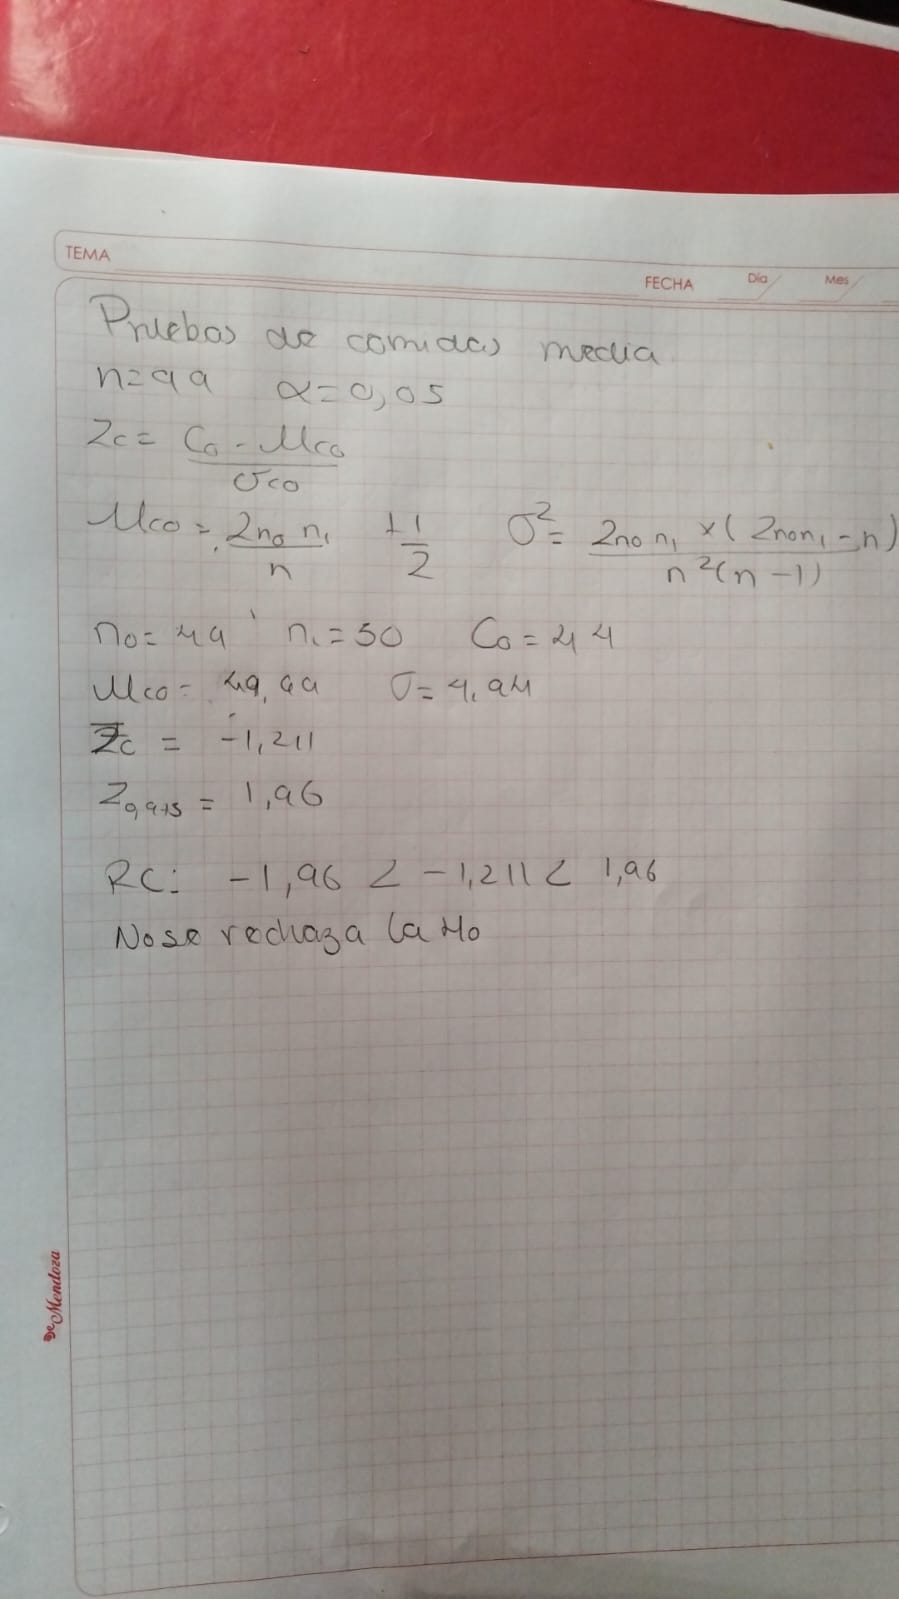 TEMA
FECHA Día Mes
Pruebas de corridas media
n=99 α=0,05
Zc= C0 - Mco / σco
Mco = 2n0 n1 / n + 1/2 σ²= 2n0 n1 x (2n0n1 - n) / n²(n-1)
n0=49 n1=50 C0=44
Mco= 49,99 σ=4,94
Zc = -1,211
Z0,975 = 1,96
RC: -1,96 < -1,211 < 1,96
No se rechaza la H0
De Mendoza